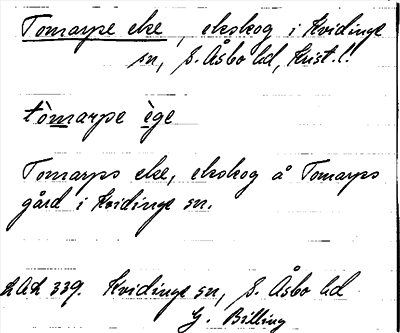 Tomarps eke, ekskog i Kvidinge
sn, S. Åsbo hd, Krist. l.
tòmarpe ège
Tomarps eke, ekskog å Tomarps
gård i Kvidinge sn.
LAL 339. Kvidinge sn, S. Åsbo hd
G. Billing